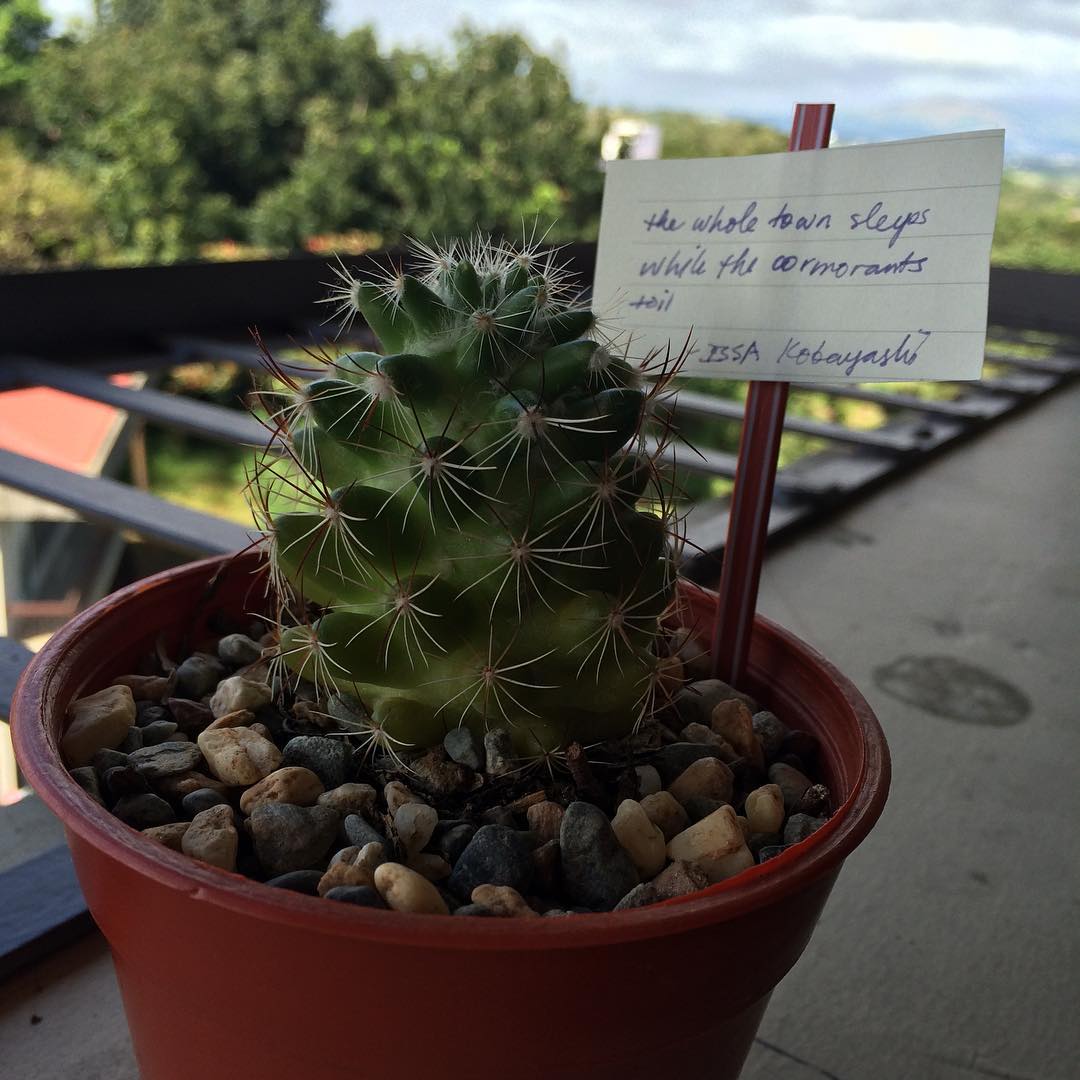 the whole town sleeps
while the cormorants
toil
- ISSA Kobayashi